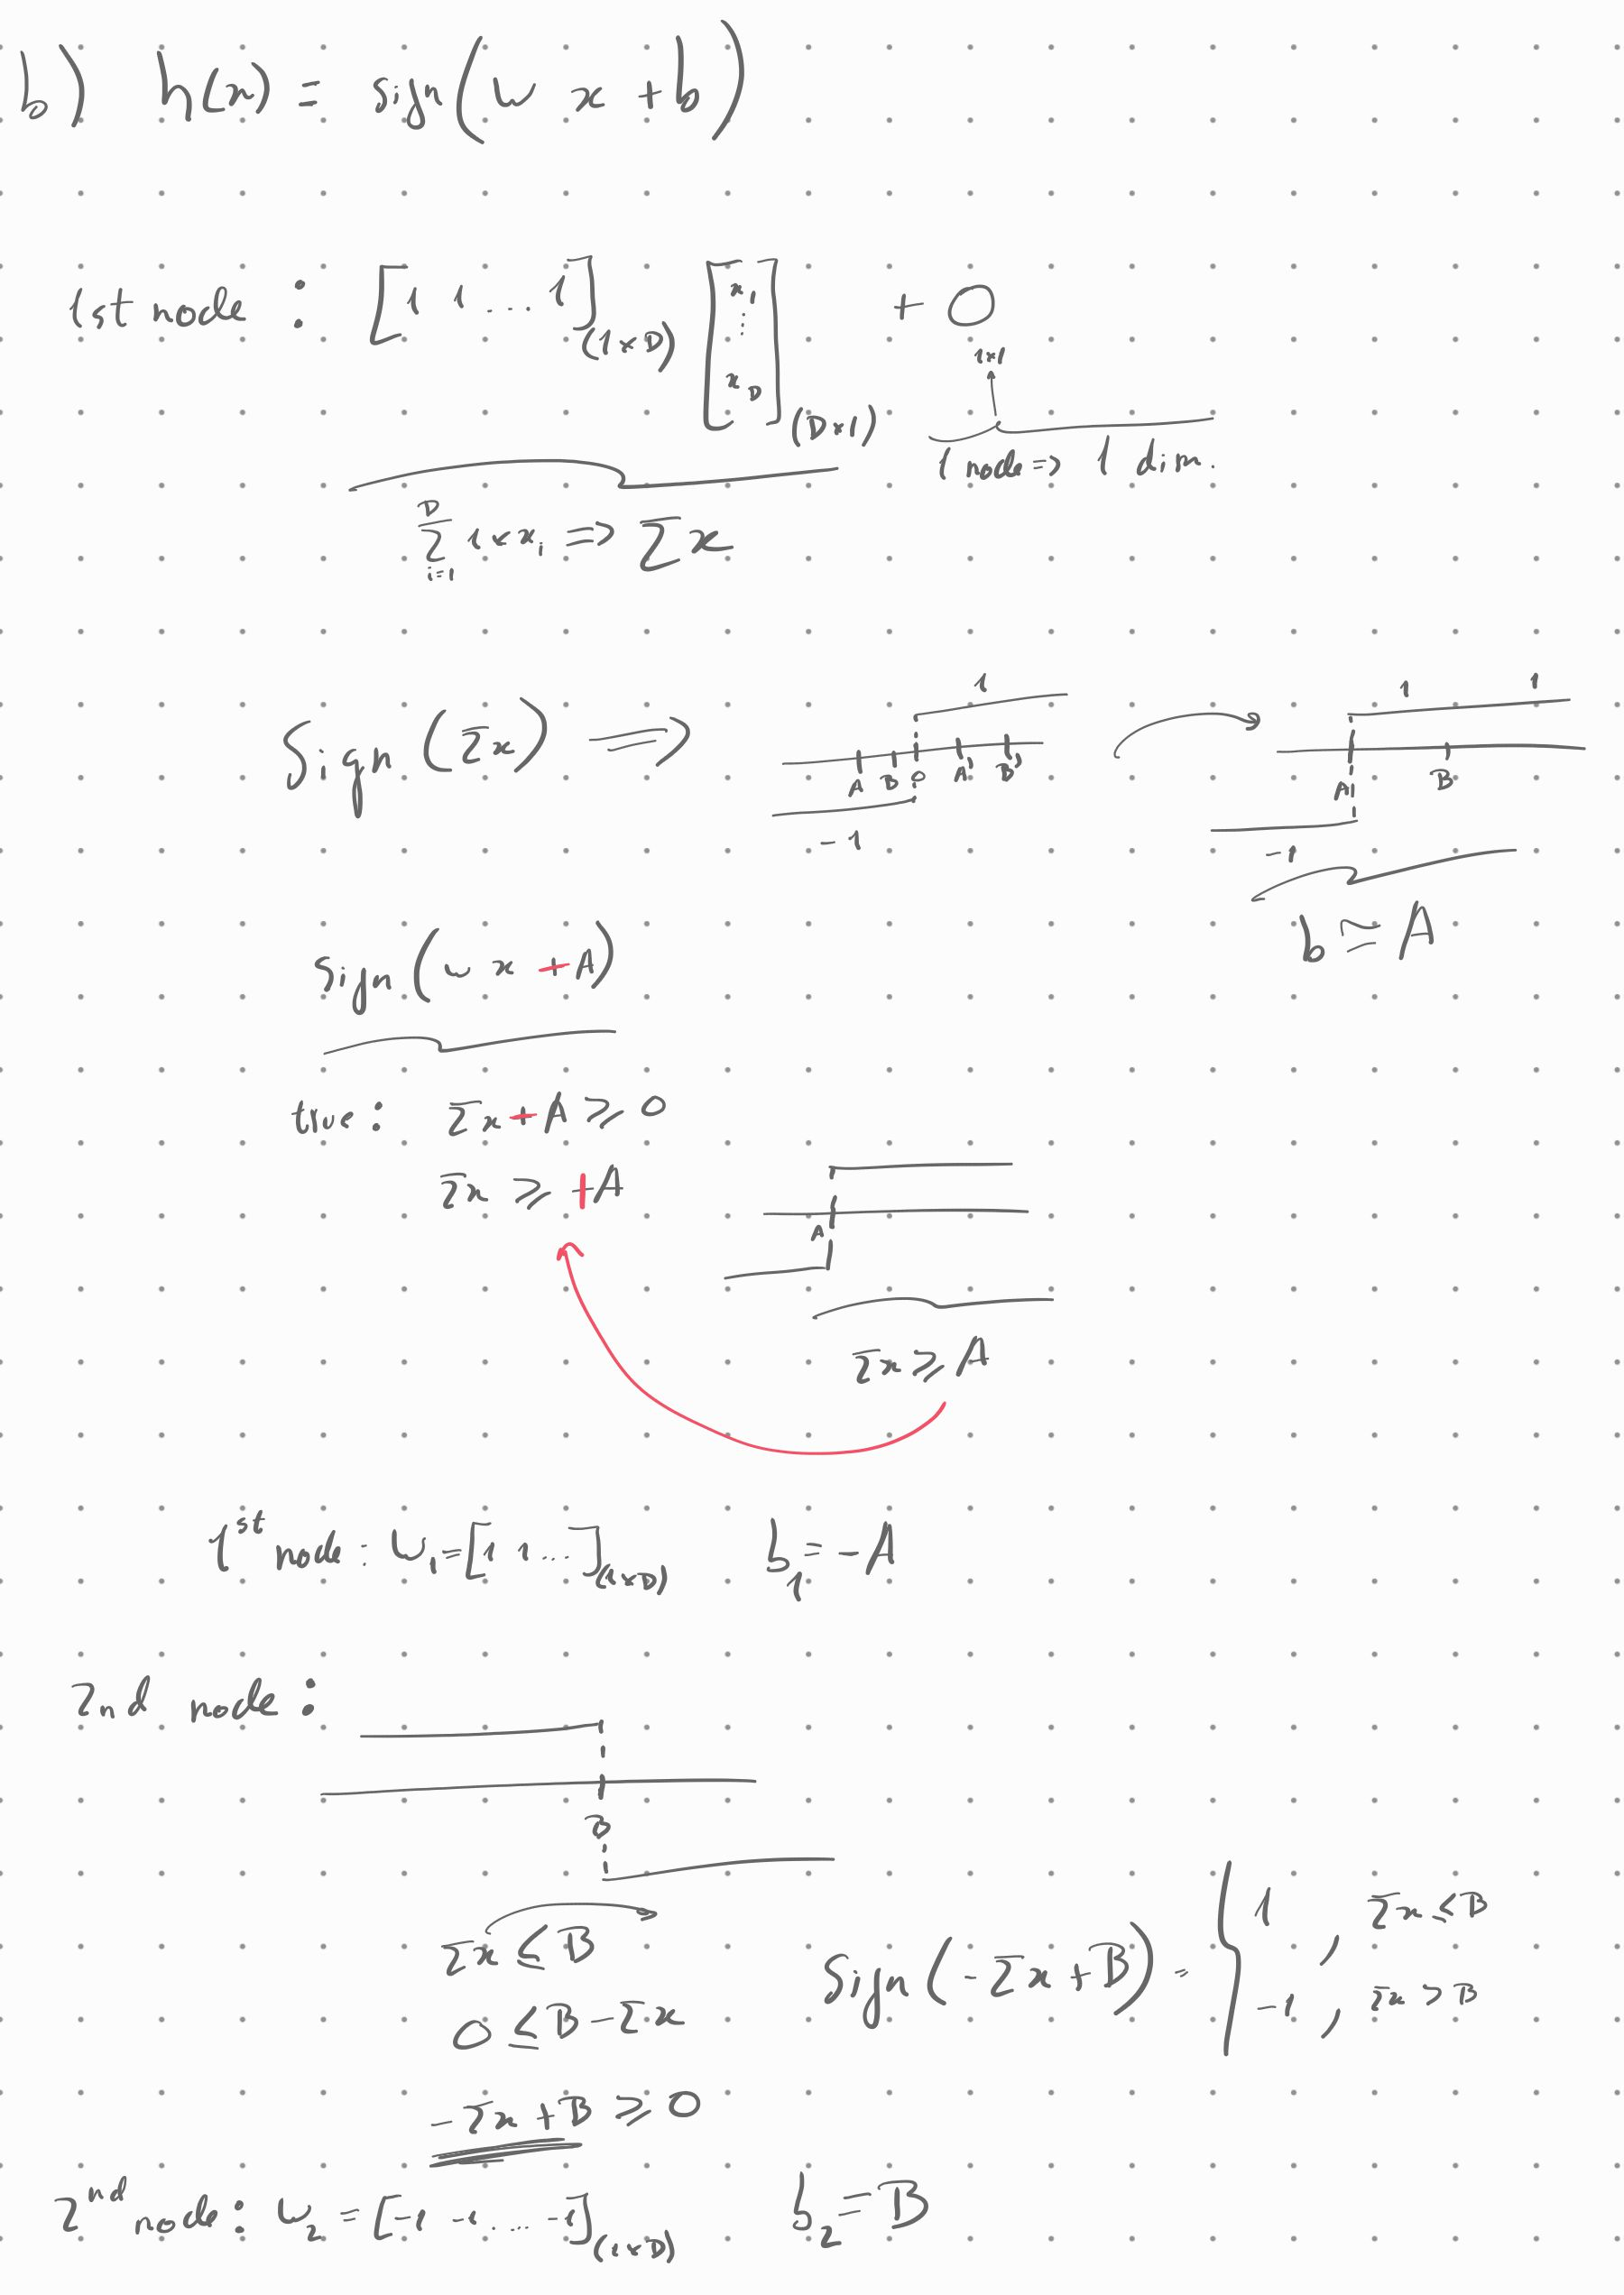 b) h(x) = sign(w x + b)
1st node : [1 1 ... 1] (1×D) [x₁ ⋮ x_D] (D×1) + 0
1×1
1 node => 1 dim.
D
Σ 1×xᵢ => Σx
i=1
Sign(Σx) =>
1
A B 0 A' B'
-1
1 1
A B
-1
b ≃ A
sign(w x + A)
true: Σx + A ≥ 0
Σx ≥ +A
A
Σx ≥ A
1st node : w₁ = [1 1 ...] (1×D) b₁ = -A
2nd node :
B
Σx ≤ B
0 ≤ B - Σx
-Σx + B ≥ 0
Sign(-Σx + B) = { 1 , Σx ≤ B
-1 , Σx > B
2nd node : w₂ = [-1 -1 .... -1] (1×D) b₂ = B